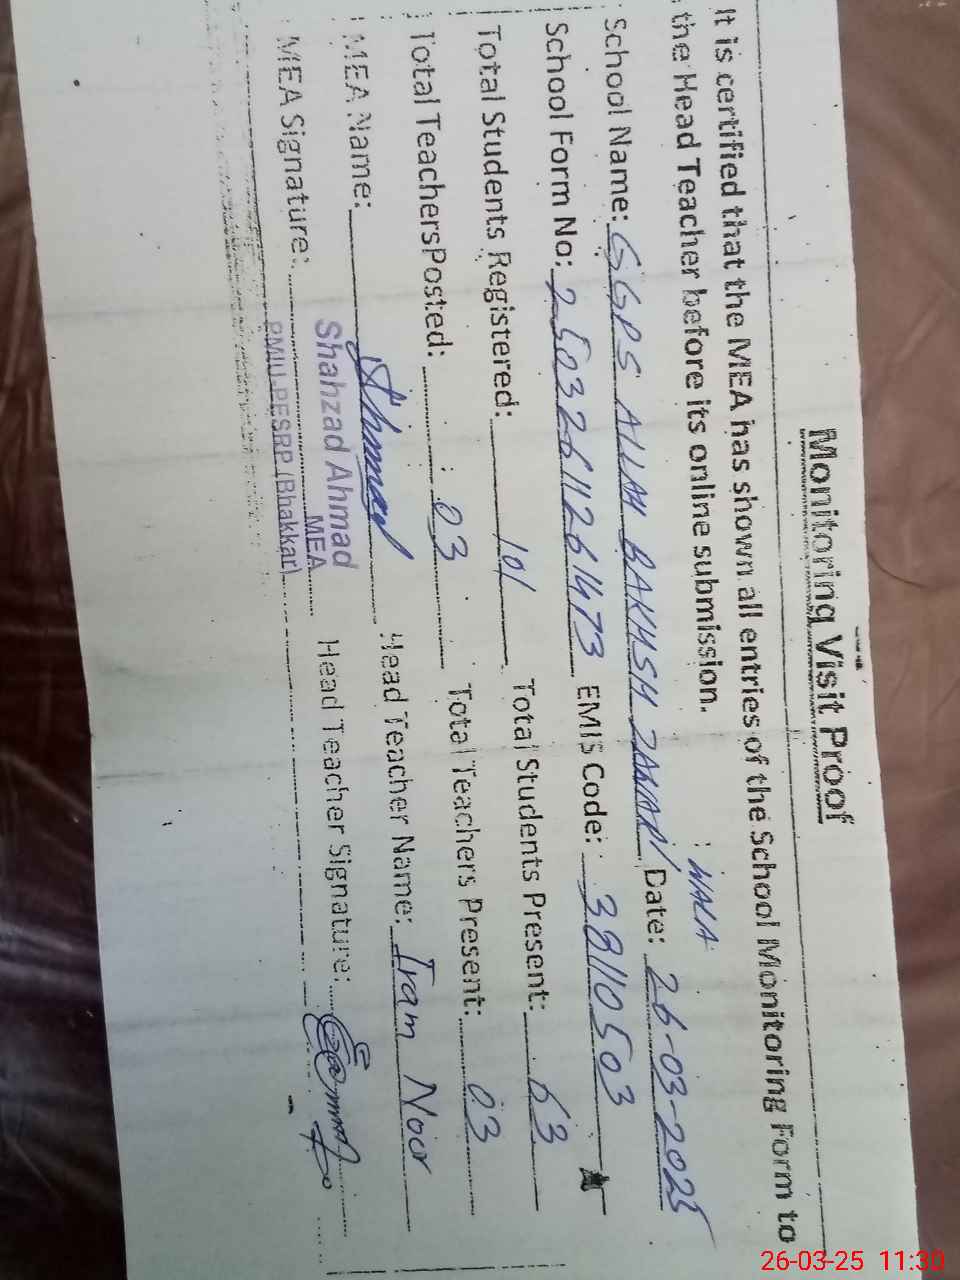 Monitoring Visit Proof
It is certified that the MEA has shown all entries of the School Monitoring Form to
the Head Teacher before its online submission.
WALA
School Name: GGPS ALLAH BAKHSH Date: 26-03-2025
School Form No: 25032611261473 EMIS Code: 38110503
Total Students Registered: 101 Total Students Present: 63
Total TeachersPosted: 03 Total Teachers Present: 03
MEA Name: Ahmad Head Teacher Name: Iram Noor
Shahzad Ahmad
MEA
MEA Signature: Head Teacher Signature:
PMIU-PESRP (Bhakkar)
26-03-25 11:30